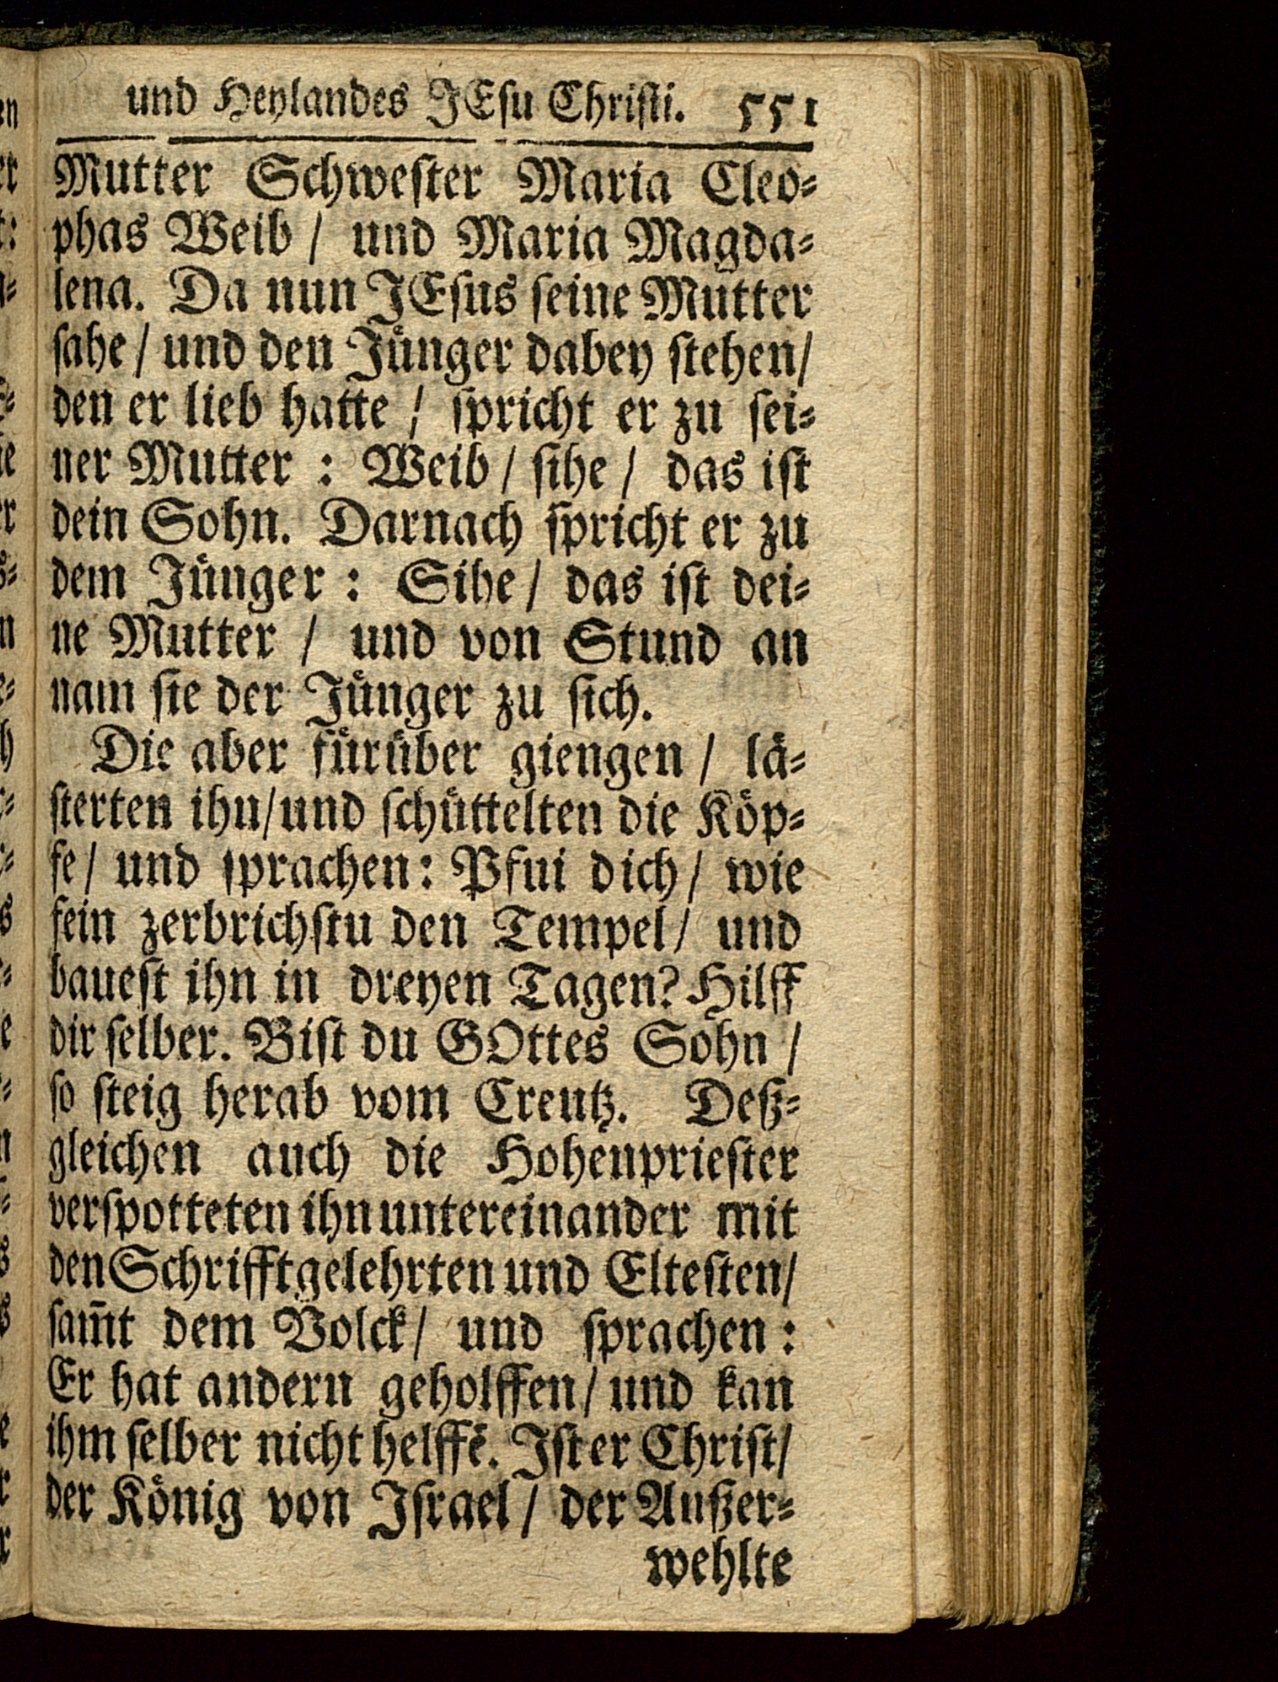 und Heylandes JEsu Christi. 551
Mutter Schwester Maria Cleo-
phas Weib / und Maria Magda-
lena. Da nun JEsus seine Mutter
sahe / und den Jünger dabey stehen/
den er lieb hatte / spricht er zu sei-
ner Mutter : Weib / sihe / das ist
dein Sohn. Darnach spricht er zu
dem Jünger : Sihe / das ist dei-
ne Mutter / und von Stund an
nam sie der Jünger zu sich.
Die aber fürüber giengen / lä-
sterten ihn/und schüttelten die Köp-
fe / und sprachen: Pfui dich / wie
fein zerbrichstu den Tempel / und
bauest ihn in dreyen Tagen? Hilff
dir selber. Bist du GOttes Sohn /
so steig herab vom Creutz. Deß-
gleichen auch die Hohenpriester
verspotteten ihn untereinander mit
den Schrifftgelehrten und Eltesten/
sam̃t dem Volck/ und sprachen :
Er hat andern geholffen/ und kan
ihm selber nicht helffē. Ist er Christ/
der König von Israel / der Außer-
wehlte